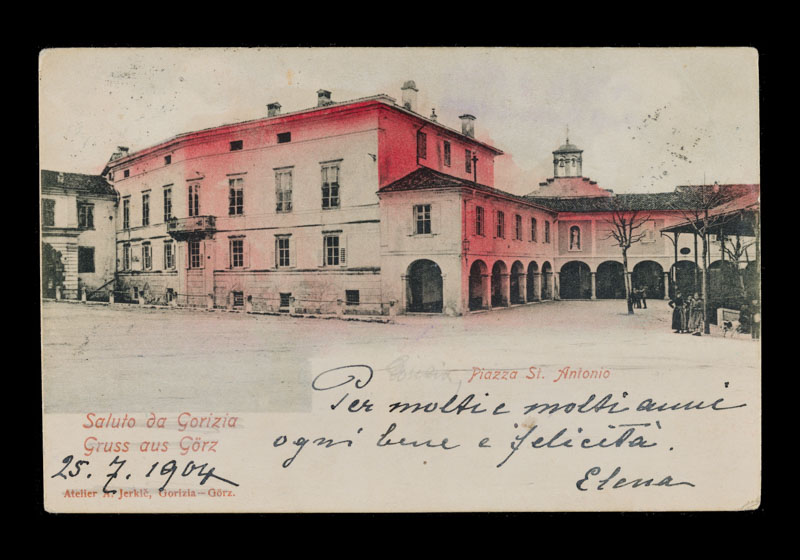 Piazza St. Antonio
Per molti e molti anni
ogni bene e felicità.
Elena
Saluto da Gorizia
Gruss aus Görz
25. 7. 1904
Atelier A. Jerkič, Gorizia–Görz.